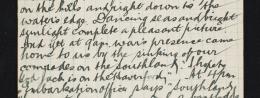 on the hills and right down to the
water's edge. Dancing seas and bright
sunlight complete a pleasant picture
but yet at 9 am, war's presence came
home to us by the sinking of our
comrades on the Southland,
Jack is on the At 4pm
Embarkation office says "Southland